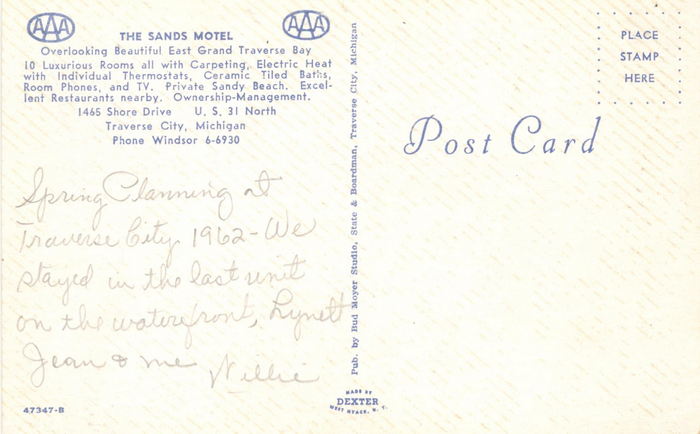 AAA
AAA
THE SANDS MOTEL
Overlooking Beautiful East Grand Traverse Bay
10 Luxurious Rooms all with Carpeting, Electric Heat
with Individual Thermostats, Ceramic Tiled Baths,
Room Phones, and TV. Private Sandy Beach. Excel-
lent Restaurants nearby. Ownership-Management.
1465 Shore Drive U. S. 31 North
Traverse City, Michigan
Phone Windsor 6-6930
Spring Clanning at
Traverse City 1962 - We
stayed in the last unit
on the waterfront, Lynett
Jean & me Willie
47347-B
Pub. by Bud Moyer Studio, State & Boardman, Traverse City, Michigan
MADE BY
DEXTER
WEST NYACK, N. Y.
Post Card
PLACE
STAMP
HERE